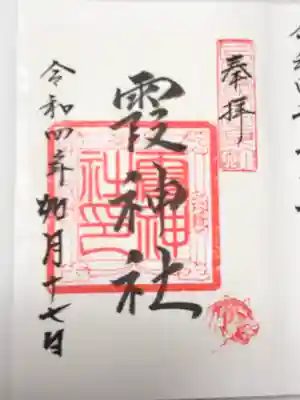 奉拝
霞神社
霞神
社印
令和四年如月十七日